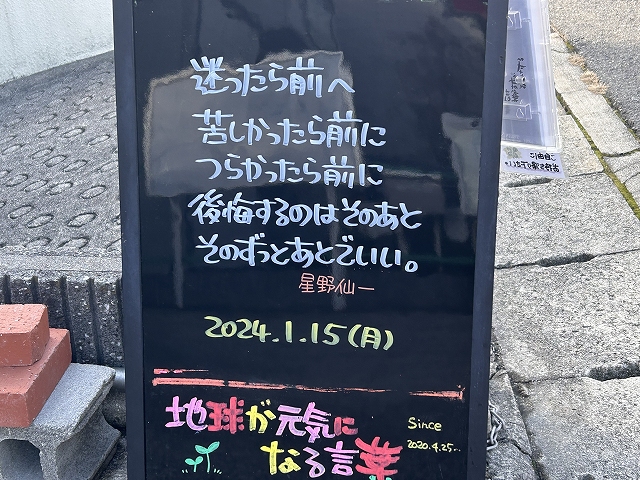 迷ったら前へ
苦しかったら前に
つらかったら前に
後悔するのはそのあと
そのずっとあとでいい。
星野仙一
2024.1.15(月)
地球が元気に
なる言葉
Since
2020.4.25..